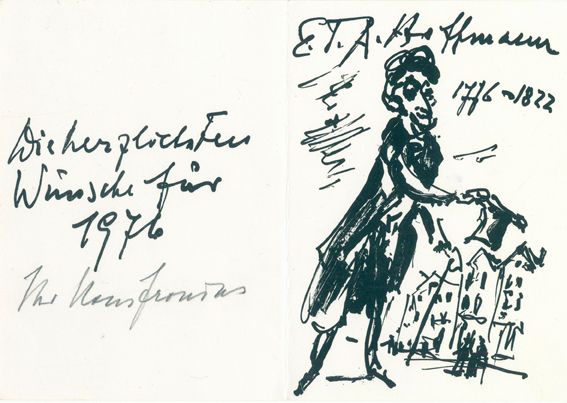 Die herzlichsten
Wünsche für
1976
Ihr Hans Fronius
E. T. A. Hoffmann
1776-1822